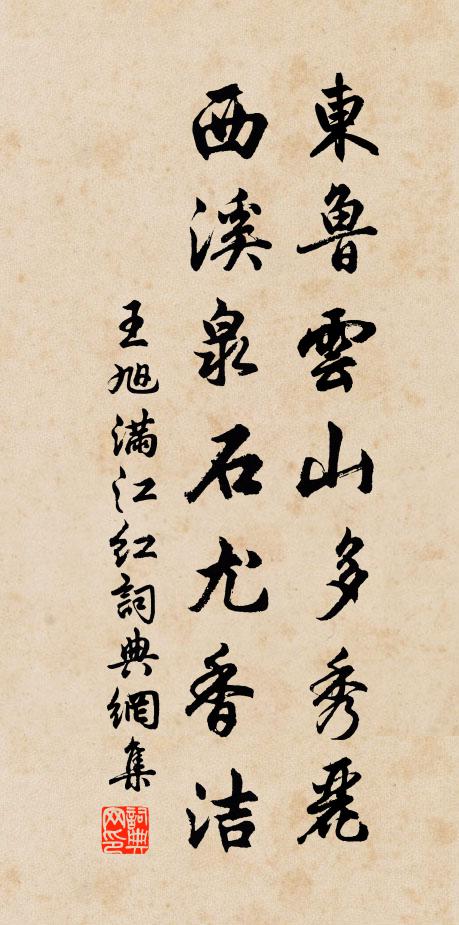 東魯雲山多秀麗
西溪泉石尤香洁
王旭滿江紅詞典網集
詞典网印